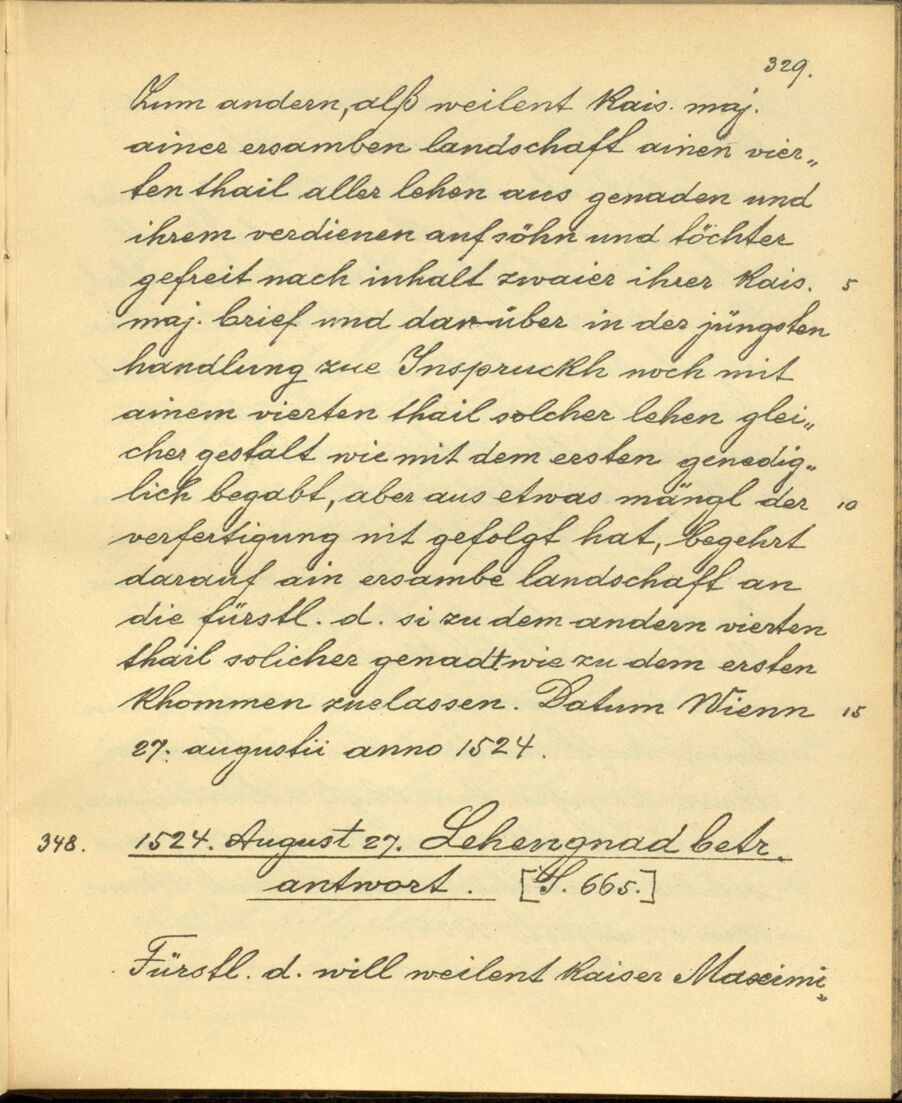 329.
Zum andern, alß weilent Kais. maj.
ainer ersamben landschaft ainen vier„
ten thail aller lehen aus genaden und
ihrem verdienen auf söhn und töchter
gefreit nach inhalt zwaier ihrer Kais. 5
maj. brief und darüber in der jüngsten
handlung zue Inspruckh noch mit
ainem vierten thail solcher lehen glei„
cher gestalt wie mit dem ersten genedig„
lich begabt, aber aus etwas mängl der 10
verfertigung nit gefolgt hat, begehrt
darauf ain ersambe landschaft an
die fürstl. d. si zu dem andern vierten
thail solicher genadt wie zu dem ersten
khommen zuelassen. Datum Wienn 15
27. augustii anno 1524.
348. 1524. August 27. Lehengnad betr.
antwort. [S. 665.]
Fürstl. d. will weilent Kaiser Maximi„